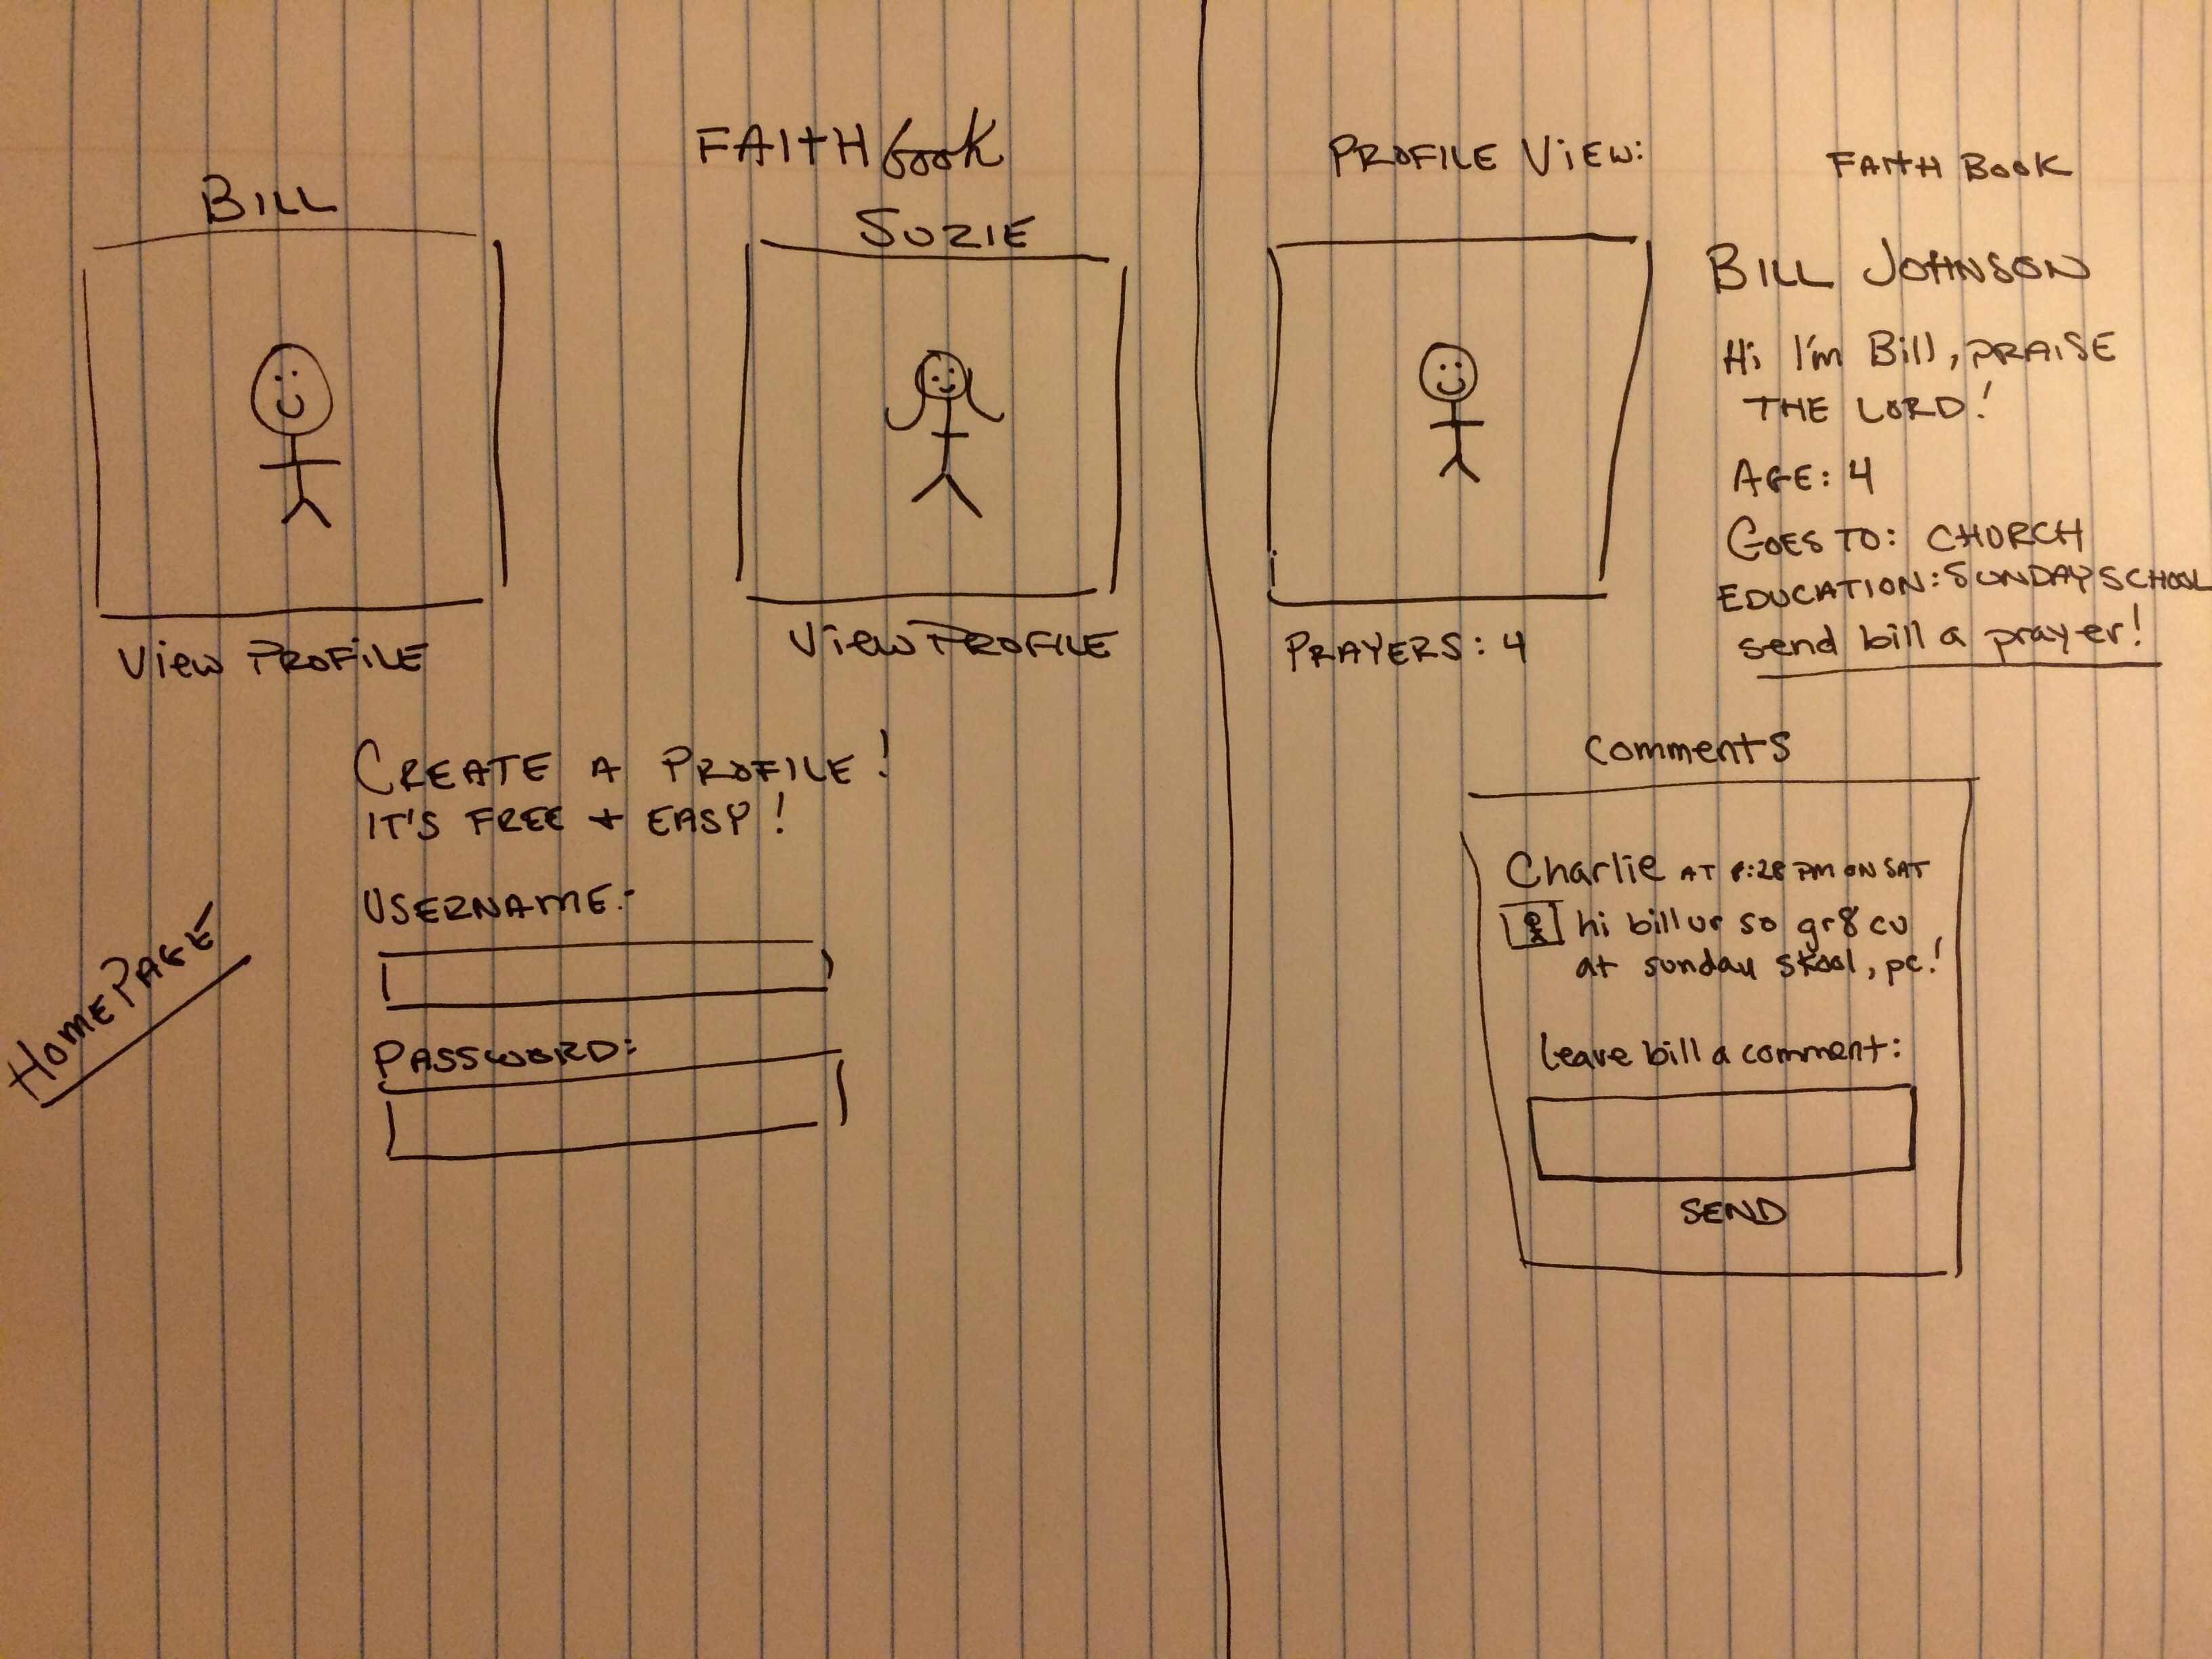 FAITH book
BILL
SUZIE
View PROFILE
View PROFILE
CREATE A PROFILE!
IT'S FREE + EASY!
USERNAME:
PASSWORD:
HOMEPAGE
PROFILE VIEW:
FAITH BOOK
BILL JOHNSON
Hi I'm Bill, PRAISE
THE LORD!
AGE: 4
GOES TO: CHURCH
EDUCATION: SUNDAY SCHOOL
send bill a prayer!
PRAYERS: 4
Comments
Charlie AT 8:28 PM ON SAT
hi bill ur so gr8 cu
at sunday skool, pc!
leave bill a comment:
SEND